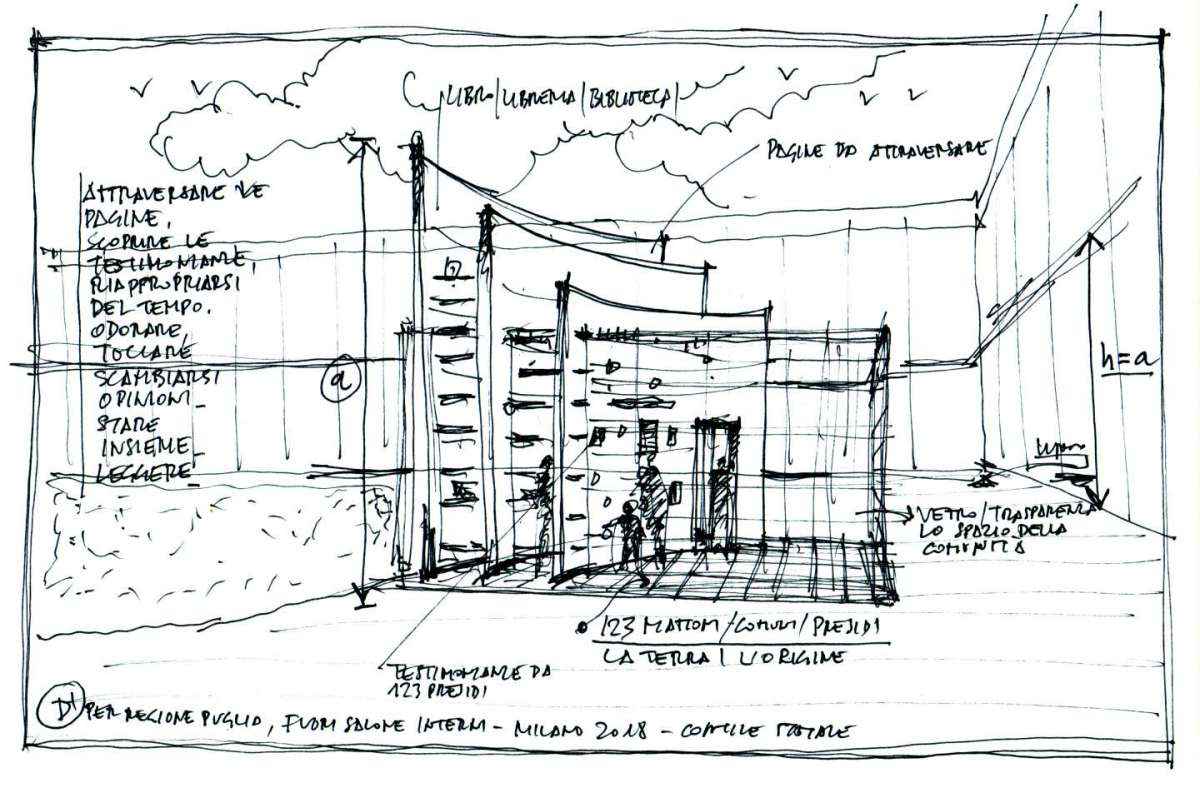 LIBRO/LIBRERIA/BIBLIOTECA/
PAGINE DA ATTRAVERSARE
ATTRAVERSARE LE
PAGINE,
SCOPRIRE LE
TESTIMONIANZE,
RIAPPROPRIARSI
DEL TEMPO.
ODORARE,
TOCCARE
SCAMBIARSI
OPINIONI_
STARE
INSIEME_
LEGGERE_
a
h=a
VETRO/TRASPARENZA
LO SPAZIO DELLA
COMUNITÀ
123 MATTONI/COMUNI/PRESIDI
LA TERRA/L'ORIGINE
TESTIMONIANZE DA
123 PRESIDI
D1 PER REGIONE PUGLIA, FUORI SALONE INTERNI - MILANO 2018 - CORTILE STATALE